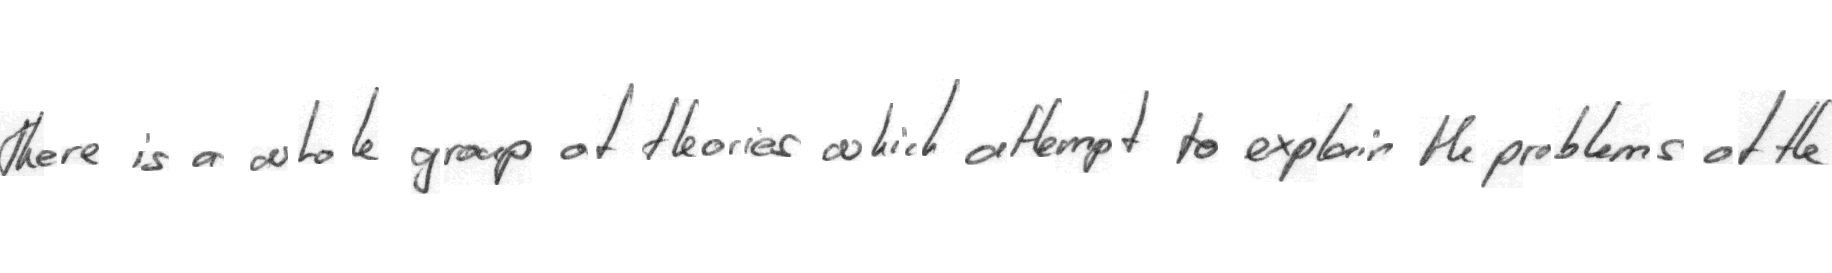 There is a whole group of theories which attempt to explain the problems of the